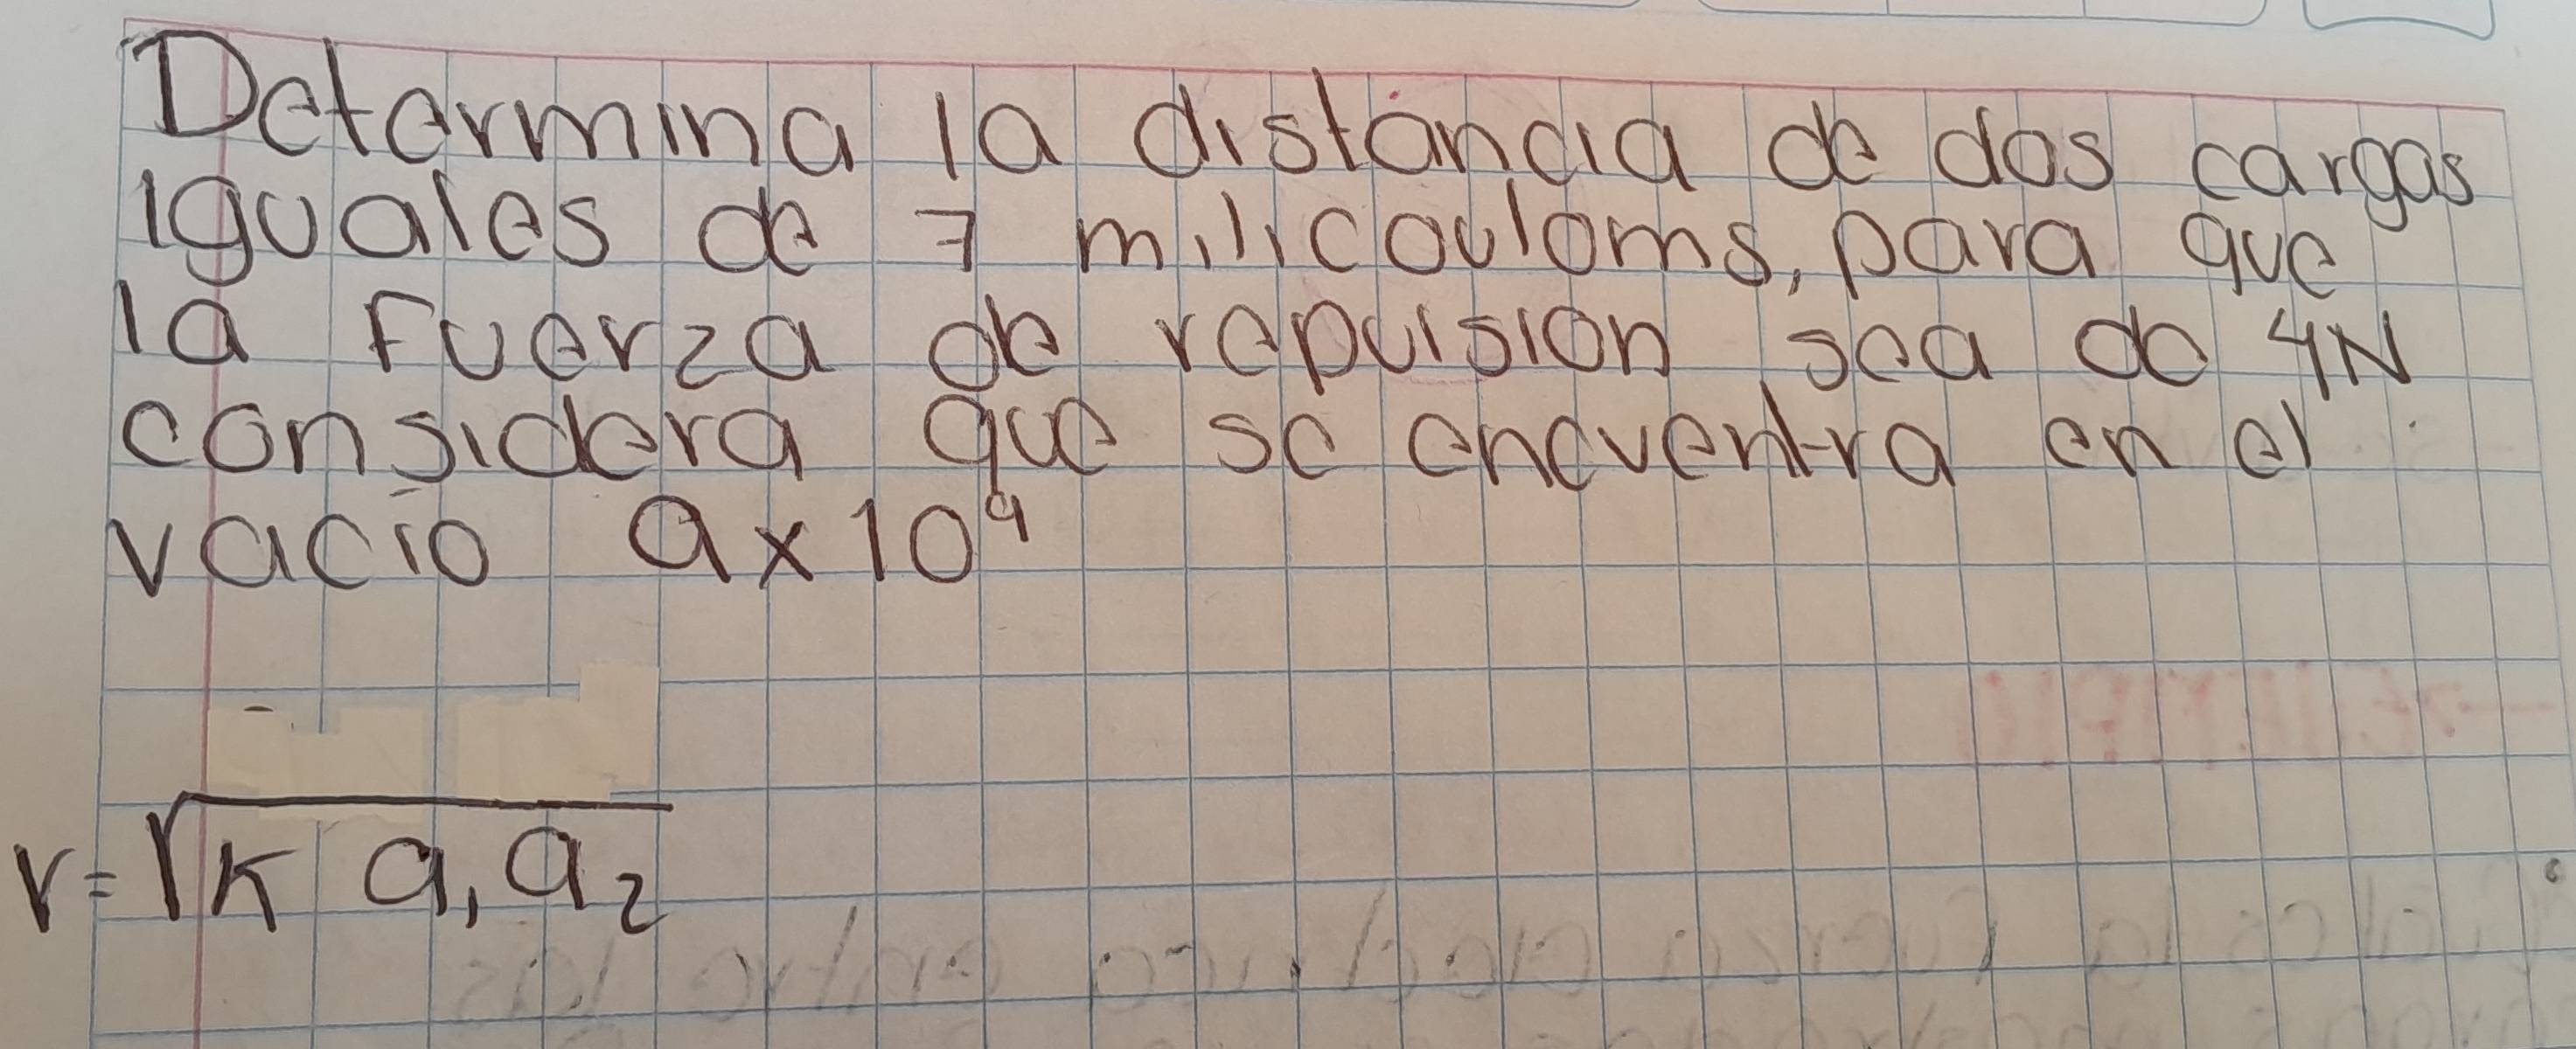 Determina la distancia de dos cargas
iguales de 7 milicouloms, para que
la Fuerza de repulsion sea de 4N
considera que se encuentra en el
vacio 9x10⁹
r=√K q₁ q₂